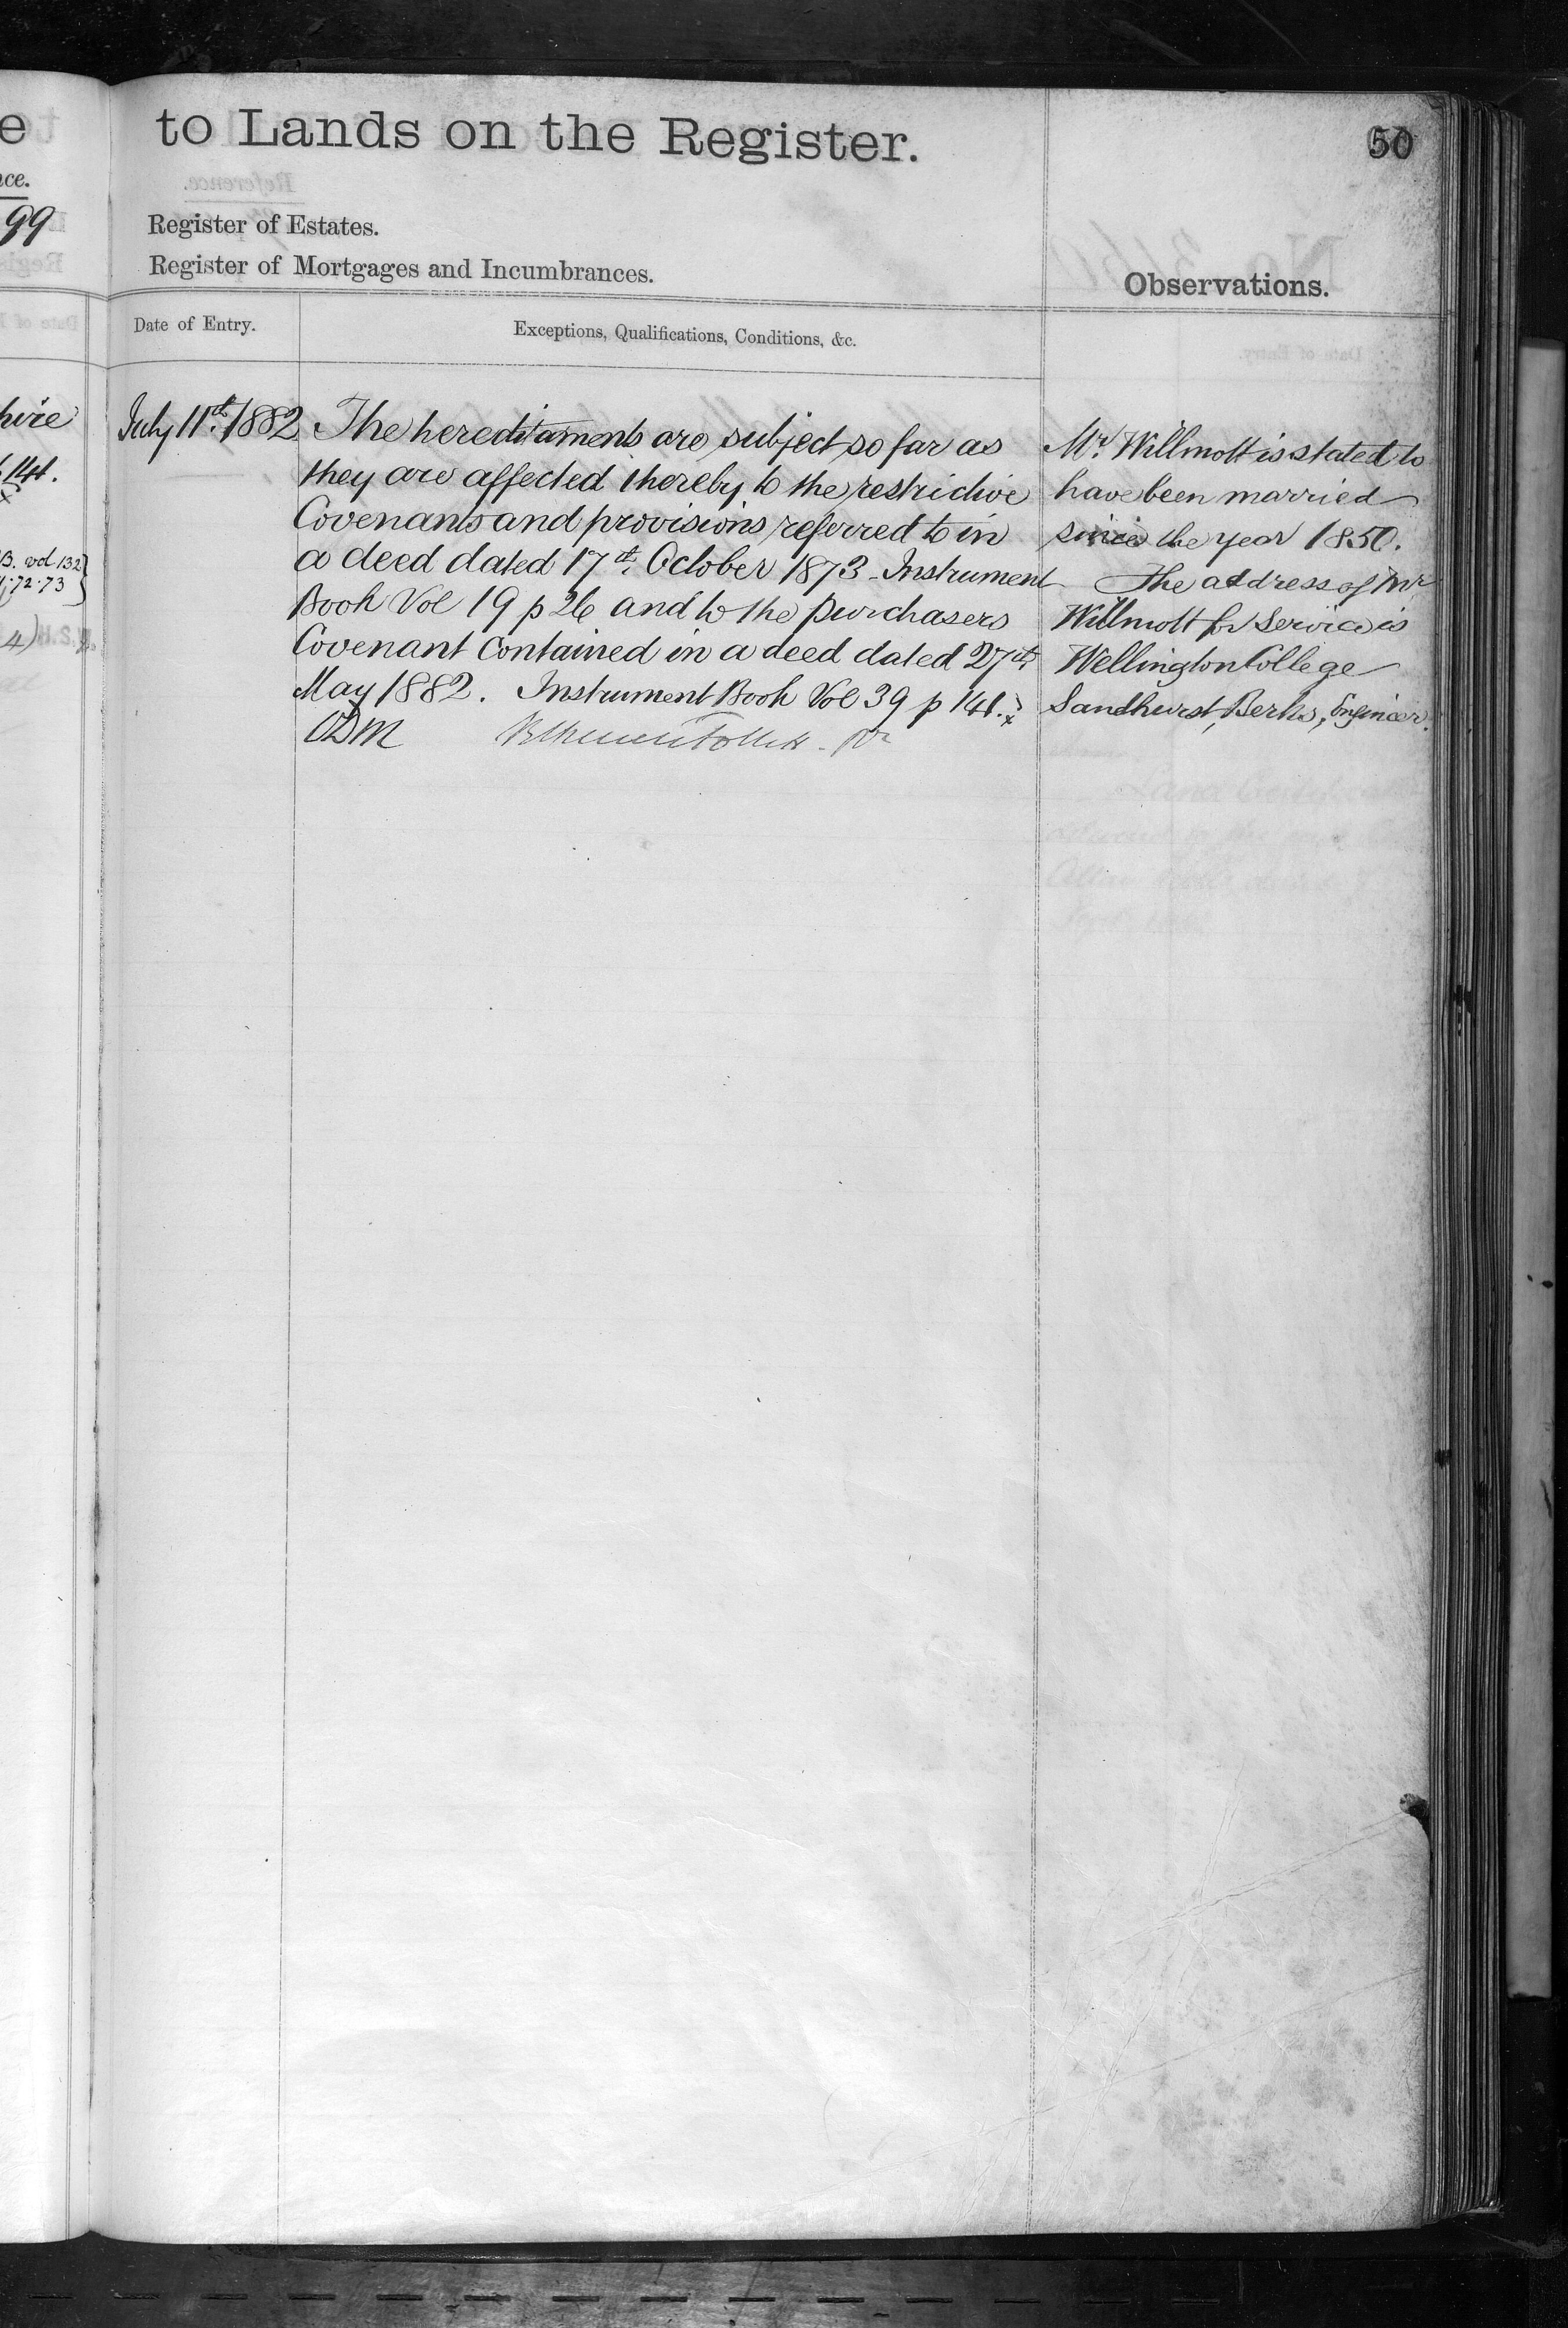 e
nce.
99
to Lands on the Register.
50
Register of Estates.
Register of Mortgages and Incumbrances.
Observations.
Date of Entry.
Exceptions, Qualifications, Conditions, &c.
hire
144.
B. vol 132
72.73
4)
July 11th. 1882
The hereditaments are subject so far as
they are affected thereby to the restrictive
Covenants and provisions referred to in
a deed dated 17th. October 1873 - Instrument
Book Vol 19 p 26 and to the purchasers
Covenant contained in a deed dated 27th
May 1882. Instrument Book Vol 39 p 141.
ODM
Mr. Willmott is stated to
have been married
since the year 1850.
The address of Mr
Willmott for Service is
Wellington College
Sandhurst, Berks, Engineer.